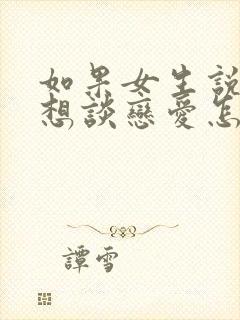 如果女生說
想談戀愛怎
譚雪